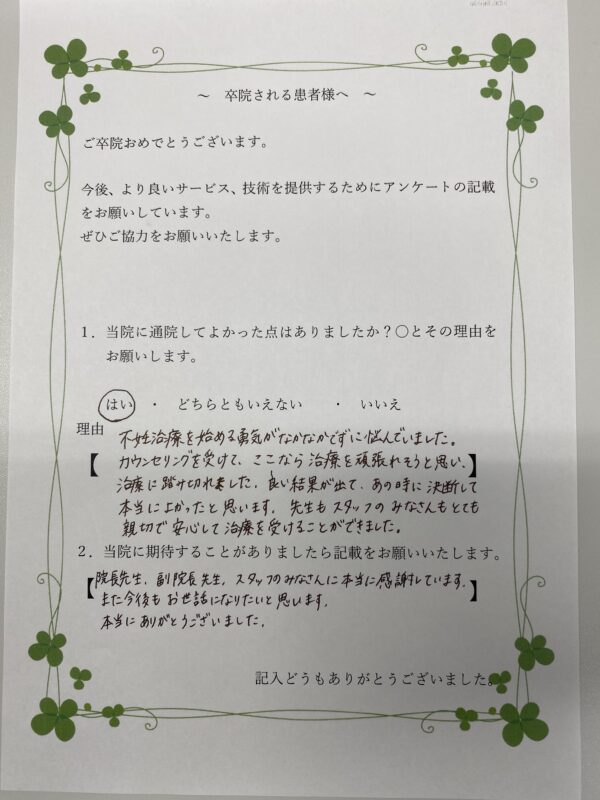 ～　卒院される患者様へ　～
ご卒院おめでとうございます。
今後、より良いサービス、技術を提供するためにアンケートの記載
をお願いしています。
ぜひご協力をお願いいたします。
１．当院に通院してよかった点はありましたか？〇とその理由を
お願いします。
はい　・　どちらともいえない　　・　いいえ
理由
【不妊治療を始める勇気がなかなかでずに悩んでいました。
カウンセリングを受けて、ここなら治療を頑張れそうと思い、
治療に踏み切れました。良い結果が出て、あの時に決断して
本当によかったと思います。先生もスタッフのみなさんもとても
親切で安心して治療を受けることができました。】
２．当院に期待することがありましたら記載をお願いいたします。
【院長先生、副院長先生、スタッフのみなさんに本当に感謝しています。
また今後もお世話になりたいと思います。
本当にありがとうございました。】
記入どうもありがとうございました。